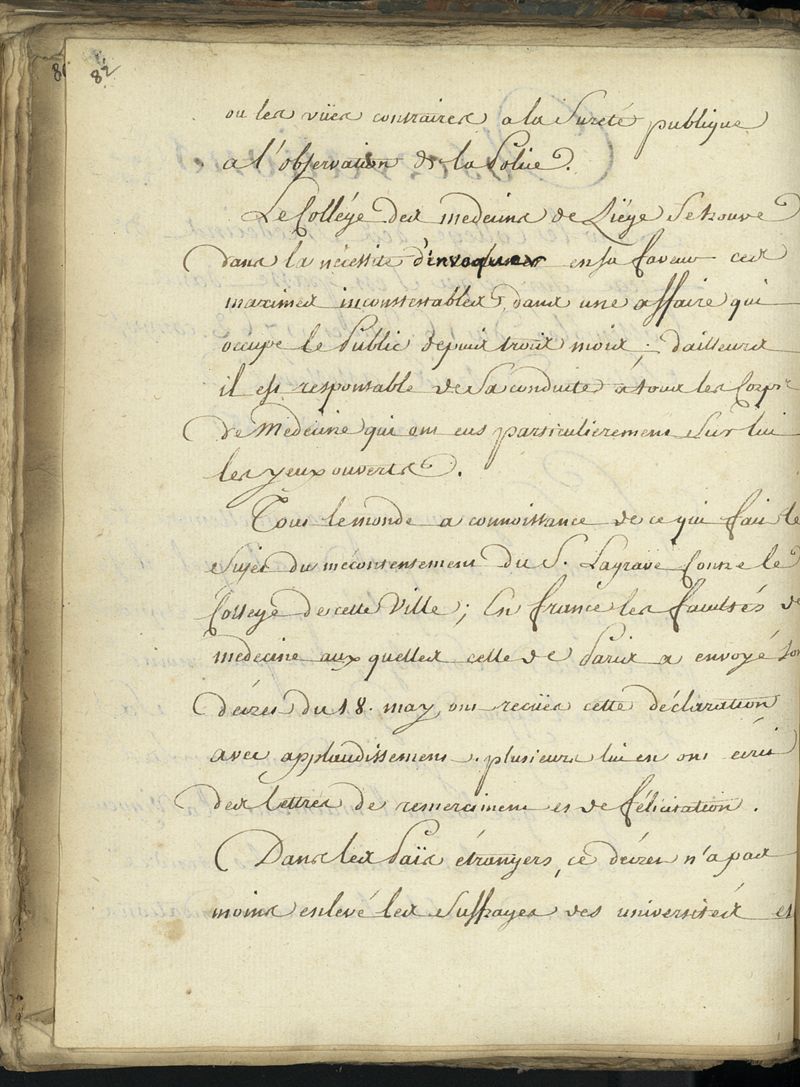 81
82
ou les vües contraires a la Sureté publique
a l'observation de la Police.
Le Collége des medecins de Liége Se trouve
dans la nécessité d'invoquer en sa faveur ces
maximes incontestables, dans une affaire qui
occupe le Public depuis trois mois ; d'ailleurs
il est responsable de Sa conduite à tous les Corps
de Medecine qui ont eus particulierement Sur lui
les yeux ouverts.
Tout le monde a connoissance de ce qui fait le
Sujet du mécontentement du S. Lagrave Contre le
College de cette Ville ; En france les facultés de
medecine aux quelles celle de Paris a envoyé son
décret du 18. may, ont recües cette déclaration
avec applaudissement. plusieurs lui en ont écrit
des lettres de remerciment et de félicitation.
Dans les Païs étrangers, ce décret n'a pas
moins enlevé les Suffrages des universités et